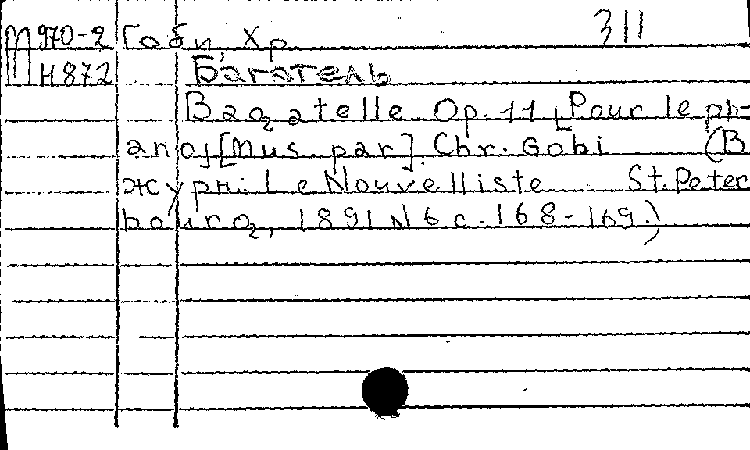 311
М 970-2 Гоби, Хр.
Н872 Багатель
Bagatelle Op. 11 [Pour le pi-
ano] [Mus. par] Chr. Gobi (В
журн. Le Nouvelliste St. Peter
bourg, 1891 N 6 с. 168-169.)